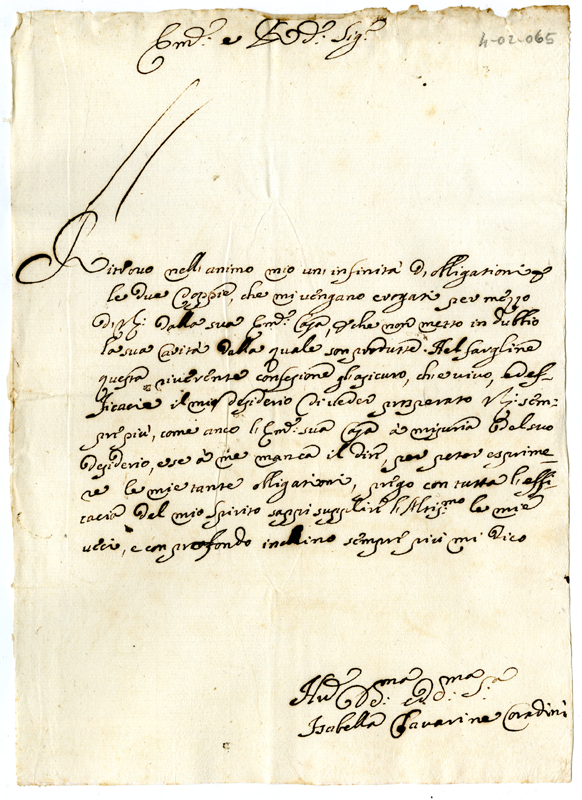 Em.^e e R.^d: Sig.^r
4-02-065
Ritrovo nell animo mio un infinità d'obligationi per
le due doppie, che mi vengano erogate per mezzo
di V.S: dalla sua Em.^e Casa, e che non metto in dubbio
la sua carità della quale son produtte. Nel fargline
questa riverente confesione gl'asicuro, che vivo, ed ef-
ficacie il mio desiderio di veder prosperato V.S: sem-
pre più, come anco l'Em.^e sua Casa à misura del suo
desiderio, e se à me manca il dir, per poter esprime
re le mie tante obligationi, prego con tutta l'effi-
cacia del mio spirito sappi supplir l'Altis.^mo le mie
veci, e con profondo inchino sempre più mi dico
Isabella Cavarine Coradini